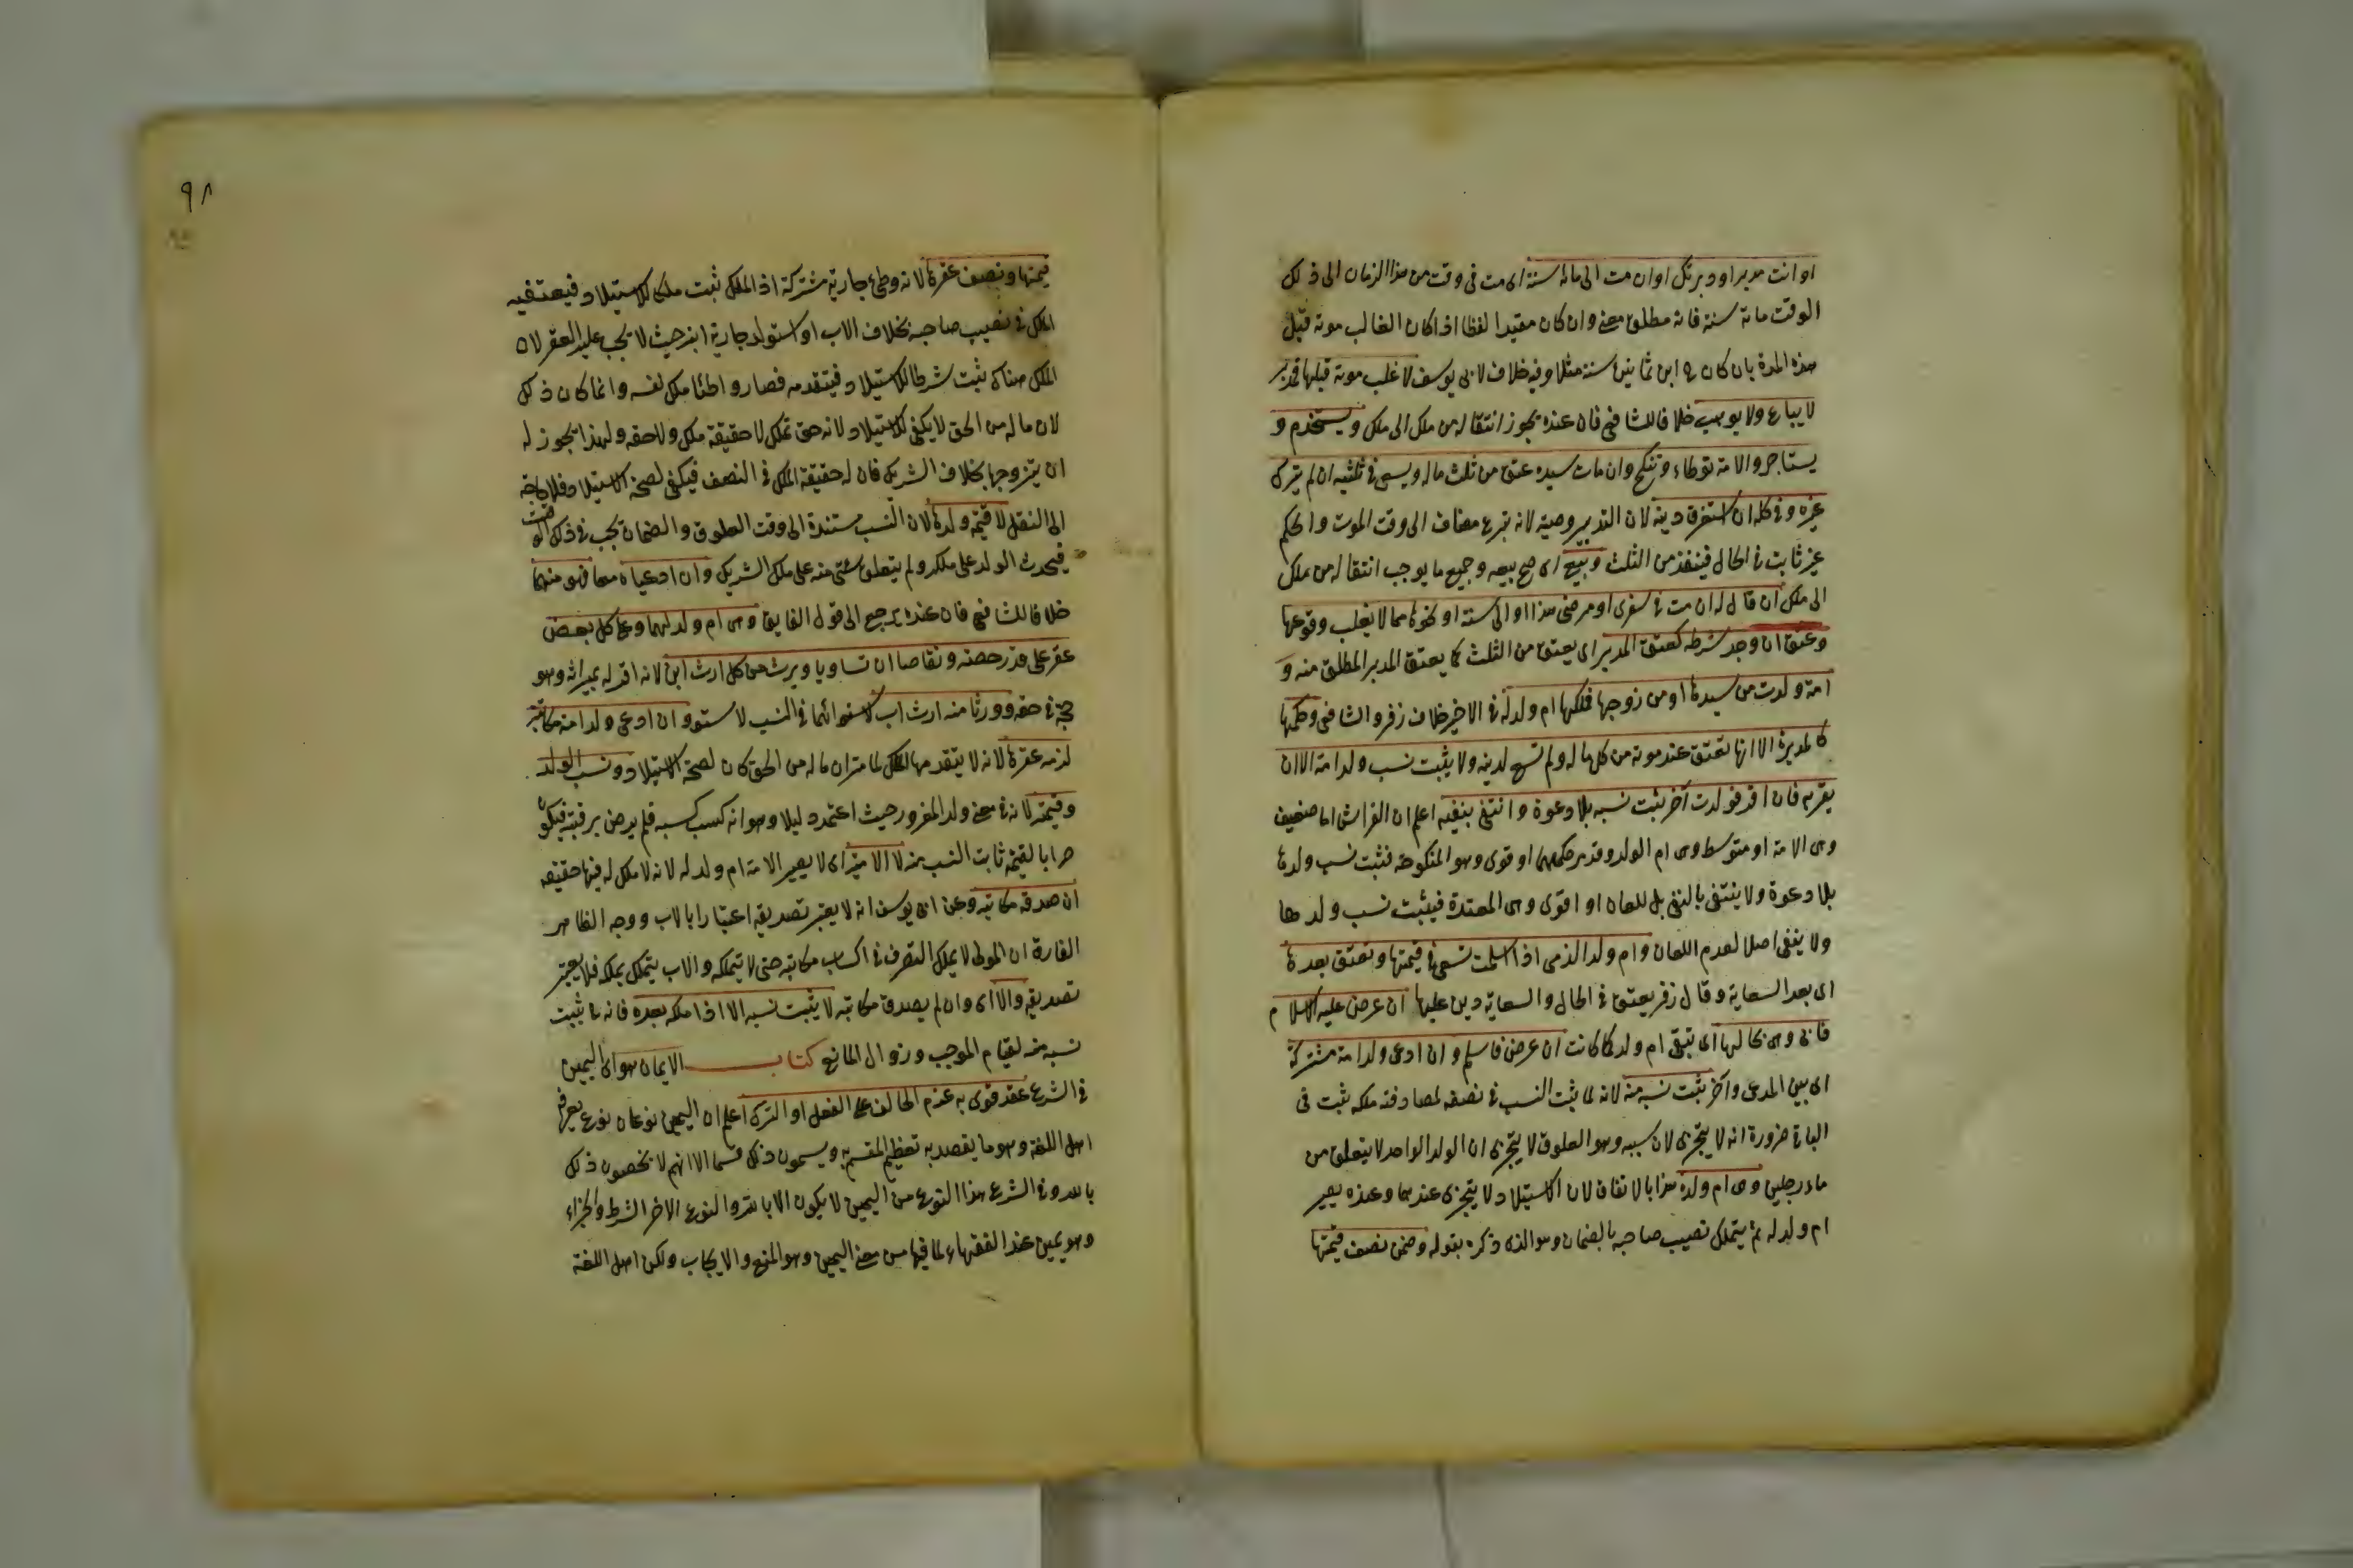 او انت مدبر او دبرتك او ان مت الى مائة سنة اى مت فى وقت من هذا الزمان الى ذلك
الوقت مائة سنة فانه مطلق معنى وان كان مقيدا لفظا اذا كان الغالب موته قبل
هذه المدة بان كان هو ابن ثمانين سنة مثلا وفيه خلاف لابى يوسف لاغلب موته قبلها
لا يباع ولا يوهب خلافا للشافعى فان عنده يجوز انتقاله من ملك الى ملك ويستخدم و
يستاجر والامة توطاء وتنكح وان مات سيده عتق من ثلث ماله ويسعى فى ثلثيه ان لم يترك
غيره وفى كله ان استغرق دينه لان التدبير وصية لانه تبرع مضاف الى وقت الموت والحكم
غير ثابت فى الحال فينفذ من الثلث وبيع اى صح بيعه وجميع ما يوجب انتقاله من ملك
الى ملك ان قال له ان مت فى سفرى او مرضى هذا او الى سنة او نحوها مما لا يغلب وقوعها
وعتق ان وجد شرطه كعتق المدبر اى يعتق من الثلث كما يعتق المدبر المطلق منه و
امة ولدت من سيدها او من زوجها فملكها ام ولد له فى الاخير خلاف زفر والشافعى وحكمها
كالمدبرة الا انها تعتق عند موته من كل ماله ولم تسع لدينه ولا يثبت نسب ولد امة الا ان
يقر به فان اقر فولدت آخر يثبت نسبه بلا دعوة وانتفى بنفيه اعلم ان الفراش اما ضعيف
وهى الامة او متوسط وهى ام الولد وقد مر حكمهما او قوى وهو المنكوحة فثبت نسب ولدها
بلا دعوة ولا ينتفى بالنفى بل للعان او اقوى وهى المعتدة فيثبت نسب ولدها
ولا ينفى اصلا لعدم اللعان وام ولد الذمى اذا اسلمت تسعى فى قيمتها وتعتق بعدها
اى بعد السعاية وقال زفر يعتق فى الحال والسعاية دين عليها ان عرض عليه الاسلام
فابى وهى بحالها اى تبقى ام ولد كما كانت ان عرض فاسلم وان ادعى ولد امة مشتركة
اى بين المدعى وآخر يثبت نسبه منه لانه لما يثبت النسب فى نصفه لمصادفته ملكه ثبت فى
الباقى ضرورة انه لا يتجزى لان سببه وهو العلوق لا يتجزى ان الولد الواحد لا يتعلق من
ماء رجلين وهى ام ولده هذا بالاتفاق لان الاستيلاد لا يتجزى عندهما وعنده يصير
ام ولد له ثم يتملك نصيب صاحبه بالضمان وهو الذى ذكره بقوله وضمن نصف قيمتها
٩٨
قيمتها ونصف عقرها لانه وطئ جارية مشتركة اذ الملك ثبت للاستيلاد فيعتقبه
الملك فى نصيب صاحبه بخلاف الاب او استولد جارية ابنه حيث لا يجب عليه العقر لان
الملك هناك يثبت شرطا للاستيلاد فيتقدمه فصار واطئا ملك نفسه وانما كان ذلك
لان ماله من الحق لا يكفى للاستيلاد لانه حق تملك لا حقيقة ملك ولا حقه ولهذا يجوز له
ان يتزوجها بخلاف الشريك فان له حقيقة الملك فى النصف فيكفى لصحة الاستيلاد فلا حاجة
الى النقل لا قيمة ولدها لان النسب مستندة الى وقت العلوق والضمان يجب فى ذلك الوقت
فيحدث الولد على ملكه ولم يتعلق شئ منه على ملك الشريك وان ادعياه معا فهو منهما
خلافا للشافعى فان عنده يرجع الى قول القايف وهى ام ولد لهما وعلى كل بعض
عقر على قدر حصته وتقاصا ان تساويا ويرث من كل ارث ابن لانه اقر له بميراثه وهو
حجة فى حقه وورثا منه ارث اب لاستوائهما فى النسب وان ادعى ولد امة مكاتبه
لزمه عقرها لانه لا يتقدمها الملك لما مر ان ماله من الحق كان لصحة الاستيلاد ونسب الولد
وقيمته لانه فى معنى ولد المغرور حيث اعتمد دليلا وهو انه كسب كسبه فلم يرض برقيته فيكون
حرا بالقيمة ثابت النسب منه لا الامة اى لا يصير الامة ام ولد له لانه لا ملك له فيها حقيقة
ان صدقه مكاتبه وعن ابى يوسف انه لا يعتبر تصديقه اعتبارا بالاب ووجه الظاهر
الفارق ان المولى لا يملك التصرف فى اكساب مكاتبه حتى لا يتملكه والاب يتملك يملكه فلا يعتبر
تصديقه والا اى وان لم يصدقه مكاتبه لا يثبت نسبه الا اذا ملكه بعده فانه يثبت
نسبه منه لقيام الموجب وزوال المانع كتاب الايمان هو اى اليمين
فى الشرع عقد قوى به عزم الحالف على الفعل او الترك اعلم ان اليمين نوعان نوع يعرفه
اهل اللغة وهو ما يقصد به تعظيم المقسم به ويسمون ذلك قسما الا انهم لا يخصون ذلك
بالله وفى الشرع هذا النوع من اليمين لا يكون الا بالله والنوع الاخر الشرط والجزاء
وهو يمين عند الفقهاء لما فيها من معنى اليمين وهو المنع والايجاب ولكن اهل اللغة